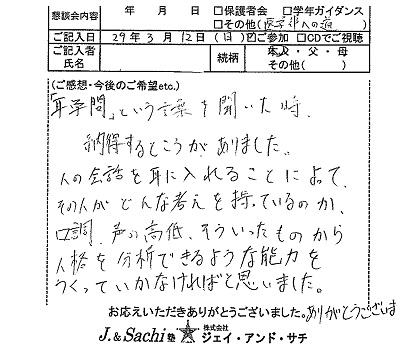 懇談会内容 年 月 日 □保護者会 □学年ガイダンス
□その他(医学部への道)
ご記入日 29年 3月 12日(日) ☑ご参加 □CDでご視聴
ご記入者氏名 続柄 本人・父・母
その他( )
(ご感想・今後のご希望etc.)
「耳学問」という言葉を聞いた時、
納得するところがありました。
人の会話を耳に入れることによって、
その人がどんな考えを持っているのか、
口調、声の高低、そういったものから
人格を分析できるような能力を
つくっていかなければと思いました。
お応えいただきありがとうございました。ありがとうございま
J.&Sachi塾 株式会社 ジェイ・アンド・サチ